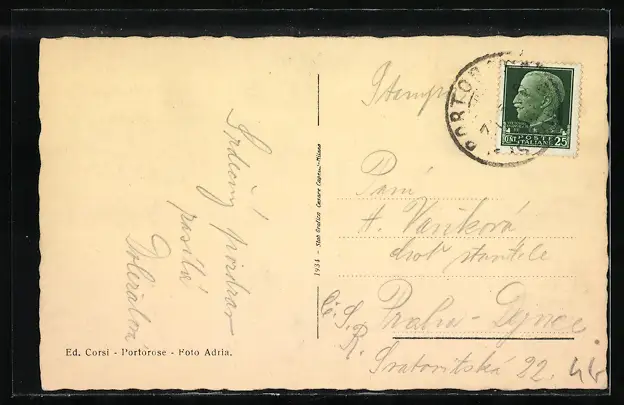 Srdečný pozdrav
posílá
Ed. Corsi - Portorose - Foto Adria.
1934 - Stab Grafico Cesare Capello-Milano
Stampe
PORTOR
POSTE
ITALIANE
CENT. 25
Paní
A. Vaňková
choť
Praha - Dejvice
Č. S. R.
Sratovitská 22.